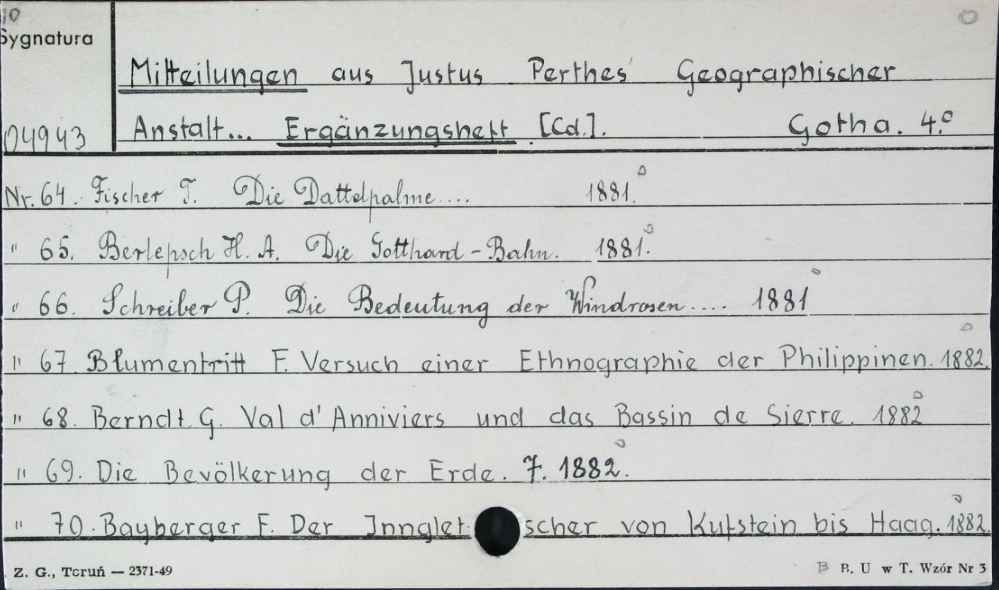 10
Sygnatura
Mitteilungen aus Justus Perthes' Geographischer
04943 Anstalt... Ergänzungsheft [Cd.]. Gotha. 4.°
Nr. 64. Fischer T. Die Dattelpalme.... 1881.
" 65. Berlepsch H. A. Die Gotthard-Bahn. 1881.
" 66. Schreiber P. Die Bedeutung der Windrosen.... 1881
" 67 Blumentritt F. Versuch einer Ethnographie der Philippinen. 1882.
" 68. Berndt G. Val d'Anniviers und das Bassin de Sierre. 1882
" 69. Die Bevölkerung der Erde. 7. 1882.
" 70. Bayberger F. Der Innglet scher von Kufstein bis Haag. 1882.
Z. G., Toruń — 2371-49 B B. U w T. Wzór Nr 3